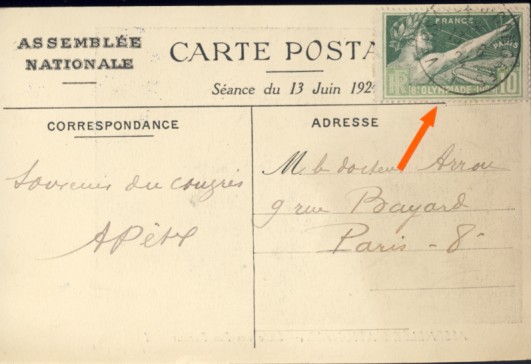 ASSEMBLÉE
NATIONALE
CARTE POSTA
Séance du 13 Juin 192
FRANCE
PARIS
8e OLYMPIADE
RF
10
CORRESPONDANCE
ADRESSE
Souvenir du congrès
M le docteur Arrou
9 rue Bayard
Paris - 8-